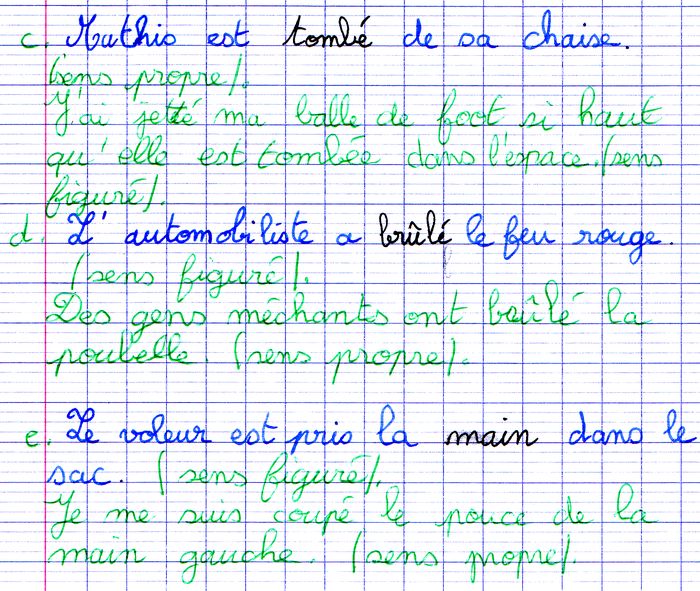 c. Mathis est tombé de sa chaise.
(sens propre).
J'ai jetté ma balle de foot si haut
qu'elle est tombée dans l'espace. (sens
figuré).
d. L'automobiliste a brûlé le feu rouge.
(sens figuré).
Des gens méchants ont brûlé la
poubelle. (sens propre).
e. Le voleur est pris la main dans le
sac. (sens figuré).
Je me suis coupé le pouce de la
main gauche. (sens propre).